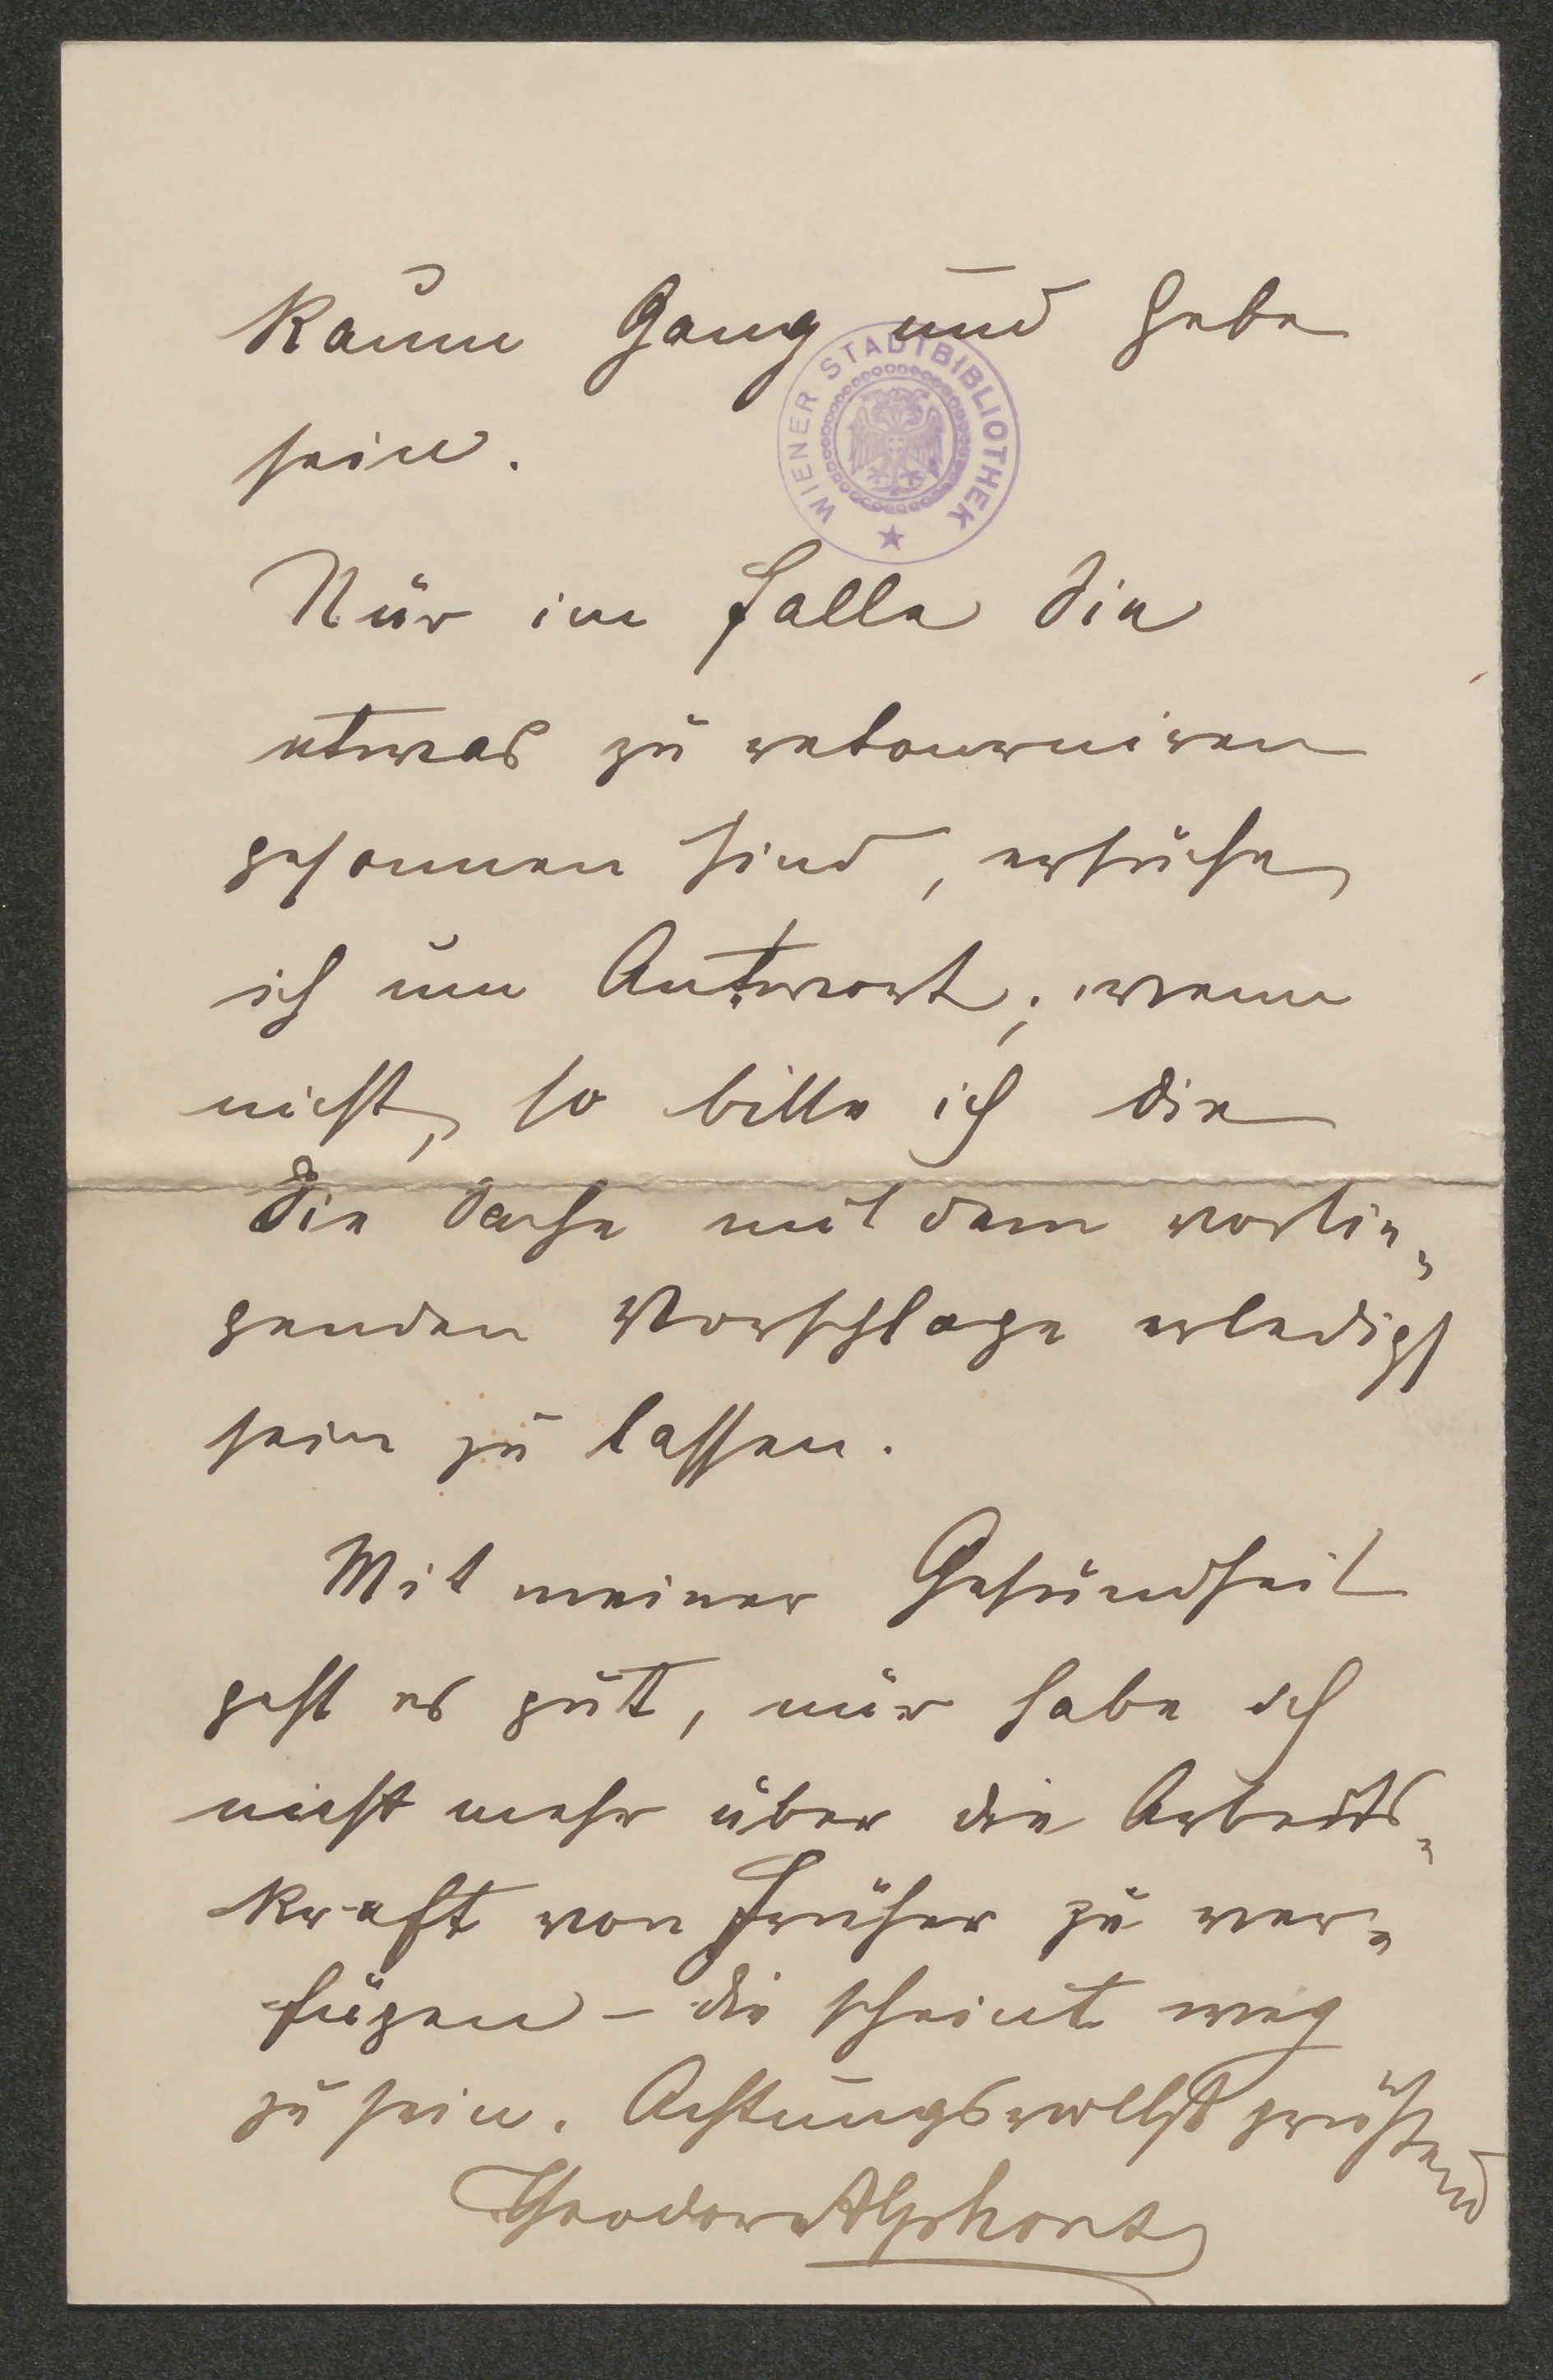 kaum Gang und Gebe
sein.
WIENER STADTBIBLIOTHEK
Nur im Falle Sie
etwas zu retourniren
gesonnen sind, ersuche
ich um Antwort; wenn
nicht, so bitte ich Sie
die Sache mit dem vorlie„
genden Vorschlage erledigt
sein zu lassen.
Mit meiner Gesundheit
geht es gut, nur habe ich
nicht mehr über die Arbeits„
kraft von Früher zu ver„
fügen – die scheint weg
zu sein. Achtungsvollst grüßend
Theodor Alphons